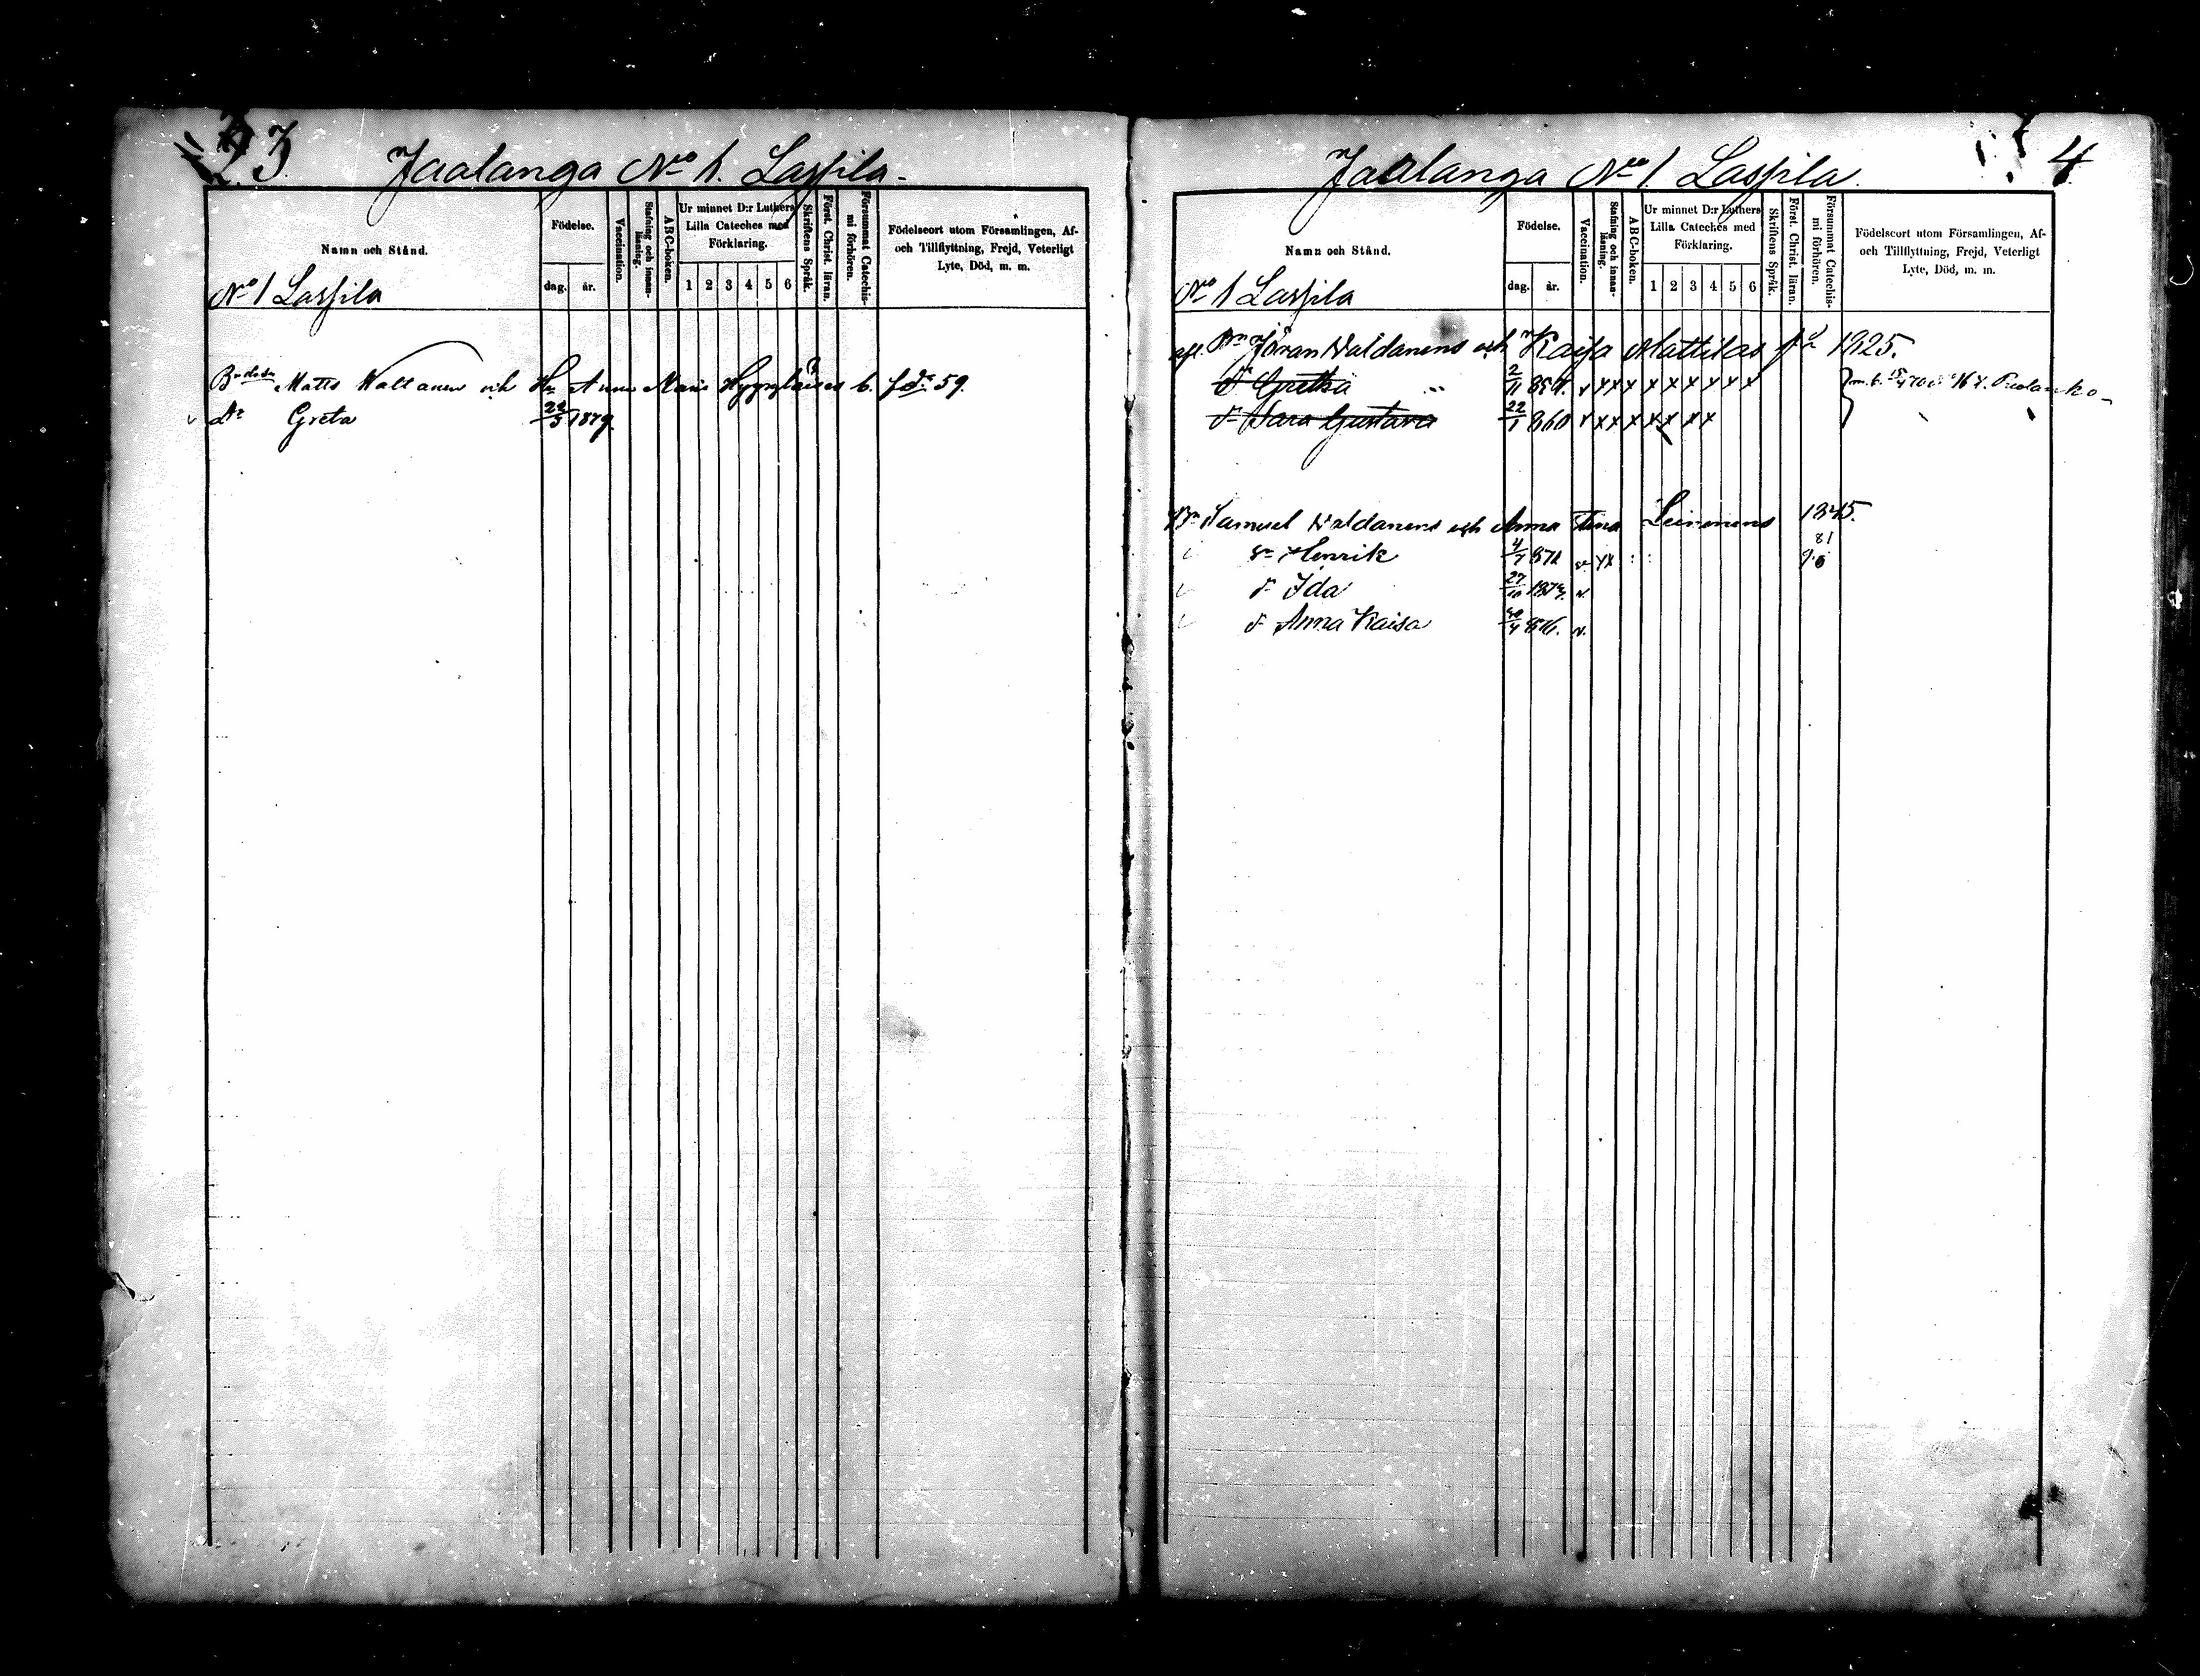 23
Jaalanga No 1. Lassila.
Namn och Stånd.
Födelse.
dag. år.
Vaccination.
Stafning och innanläsning.
ABC-boken.
Ur minnet D:r Luthers Lilla Cateches med Förklaring.
1 2 3 4 5 6
Skriftens Språk.
Först. Christ. läran.
Försummat Catechismi förhören.
Födelseort utom Församlingen, Af-
och Tillflyttning, Frejd, Veterligt
Lyte, Död, m. m.
No 1 Lassila
Matts Waltanen och Hu Anna Maria 59.
Dr Greta 22/3 1879.
4
Jaalanga No 1 Lassila.
Namn och Stånd.
Födelse.
dag. år.
Vaccination.
Stafning och innanläsning.
ABC-boken.
Ur minnet D:r Luthers Lilla Cateches med Förklaring.
1 2 3 4 5 6
Skriftens Språk.
Först. Christ. läran.
Försummat Catechismi förhören.
Födelseort utom Församlingen, Af-
och Tillflyttning, Frejd, Veterligt
Lyte, Död, m. m.
No 1 Lassila
Jöran Waldanens och Kaisa Mattilas 1925.
dr Greta 2/11 857. v x x x x x x x x x
dr Sara Gustava 22/1 860 v x x x x x x x
Samuel Waldanens och Anna Stina Leinonens 1845.
sn Henrik 4/7 871 v x x 81
dr Ida 27/10 1873. v.
dr Anna Kaisa 30/4 876. v.